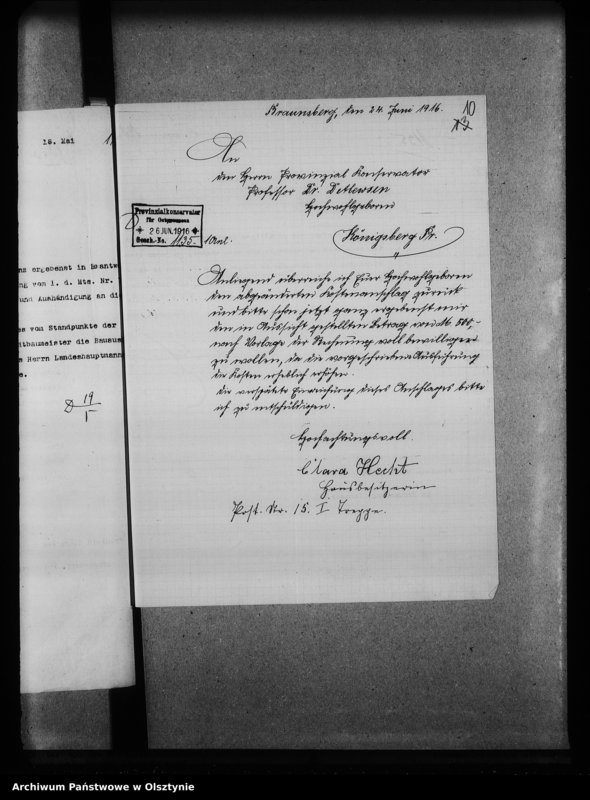 18. Mai 1
ns ergebenst in Beantw
ng vom 1. d. Mts. Nr.
und Aushändigung an di
es vom Standpunkte der
dtbaumeister die Bausu
s Herrn Landeshauptmann
e.
19
I
Braunsberg, den 24. Juni 1916.
10
An
den Herrn Provinzial Konservator
Professor Dr. Dethlefsen
Hochwohlgeboren
Königsberg Pr.
Provinzialkonservator
für Ostpreussen
26 JUN. 1916
Gesch.-No. 1135.
1 Anl.
Anliegend überreiche ich Euer Hochwohlgeboren
den abgeänderten Kostenanschlag zurück
und bitte schon jetzt ganz ergebenst mir
den in Aussicht gestellten Betrag von M 500,-
nach Vorlage der Rechnung voll bewilligen
zu wollen, da die vorgeschriebene Ausführung
die Kosten erheblich erhöhen.
Die verspätete Einreichung dieses Anschlages bitte
ich zu entschuldigen.
Hochachtungsvoll
Clara Hecht
Hausbesitzerin
Post. Str. 15. I Treppe.
Archiwum Państwowe w Olsztynie